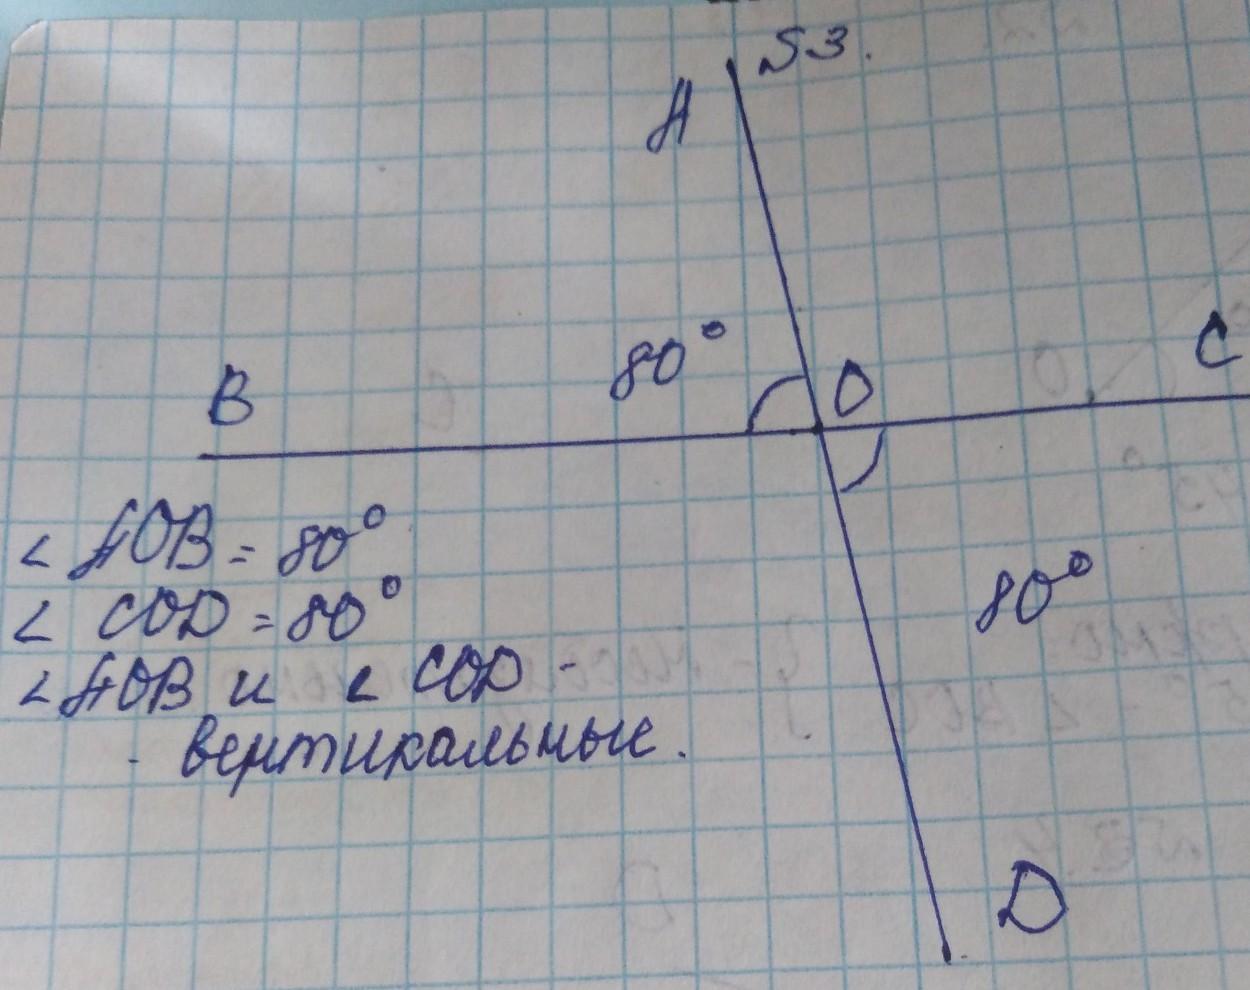 N3.
A
80°
O
C
B
∠AOB = 80°
∠COD = 80°
80°
∠AOB и ∠COD -
- вертикальные.
D